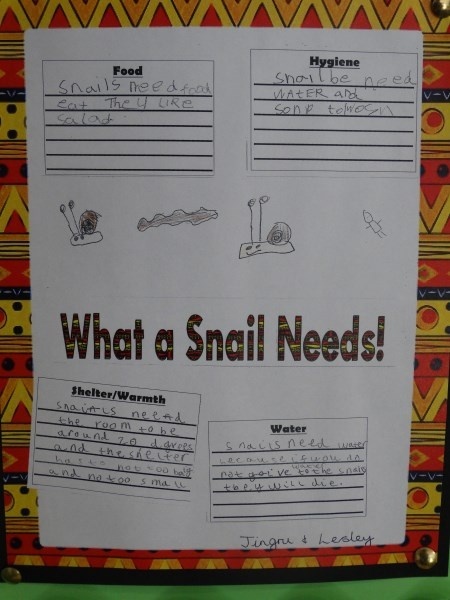 Food
Snails need food
eat They LIKE
salad
Hygiene
Snail be need
WATER And
to wash
What a Snail Needs!
Shelter/Warmth
snails need
the room to be
around 20 degrees
and the shelter
not too big
and not too small
Water
Snails need water
because if you do
not give water to the snails
they will die.
Jingru & Lesley